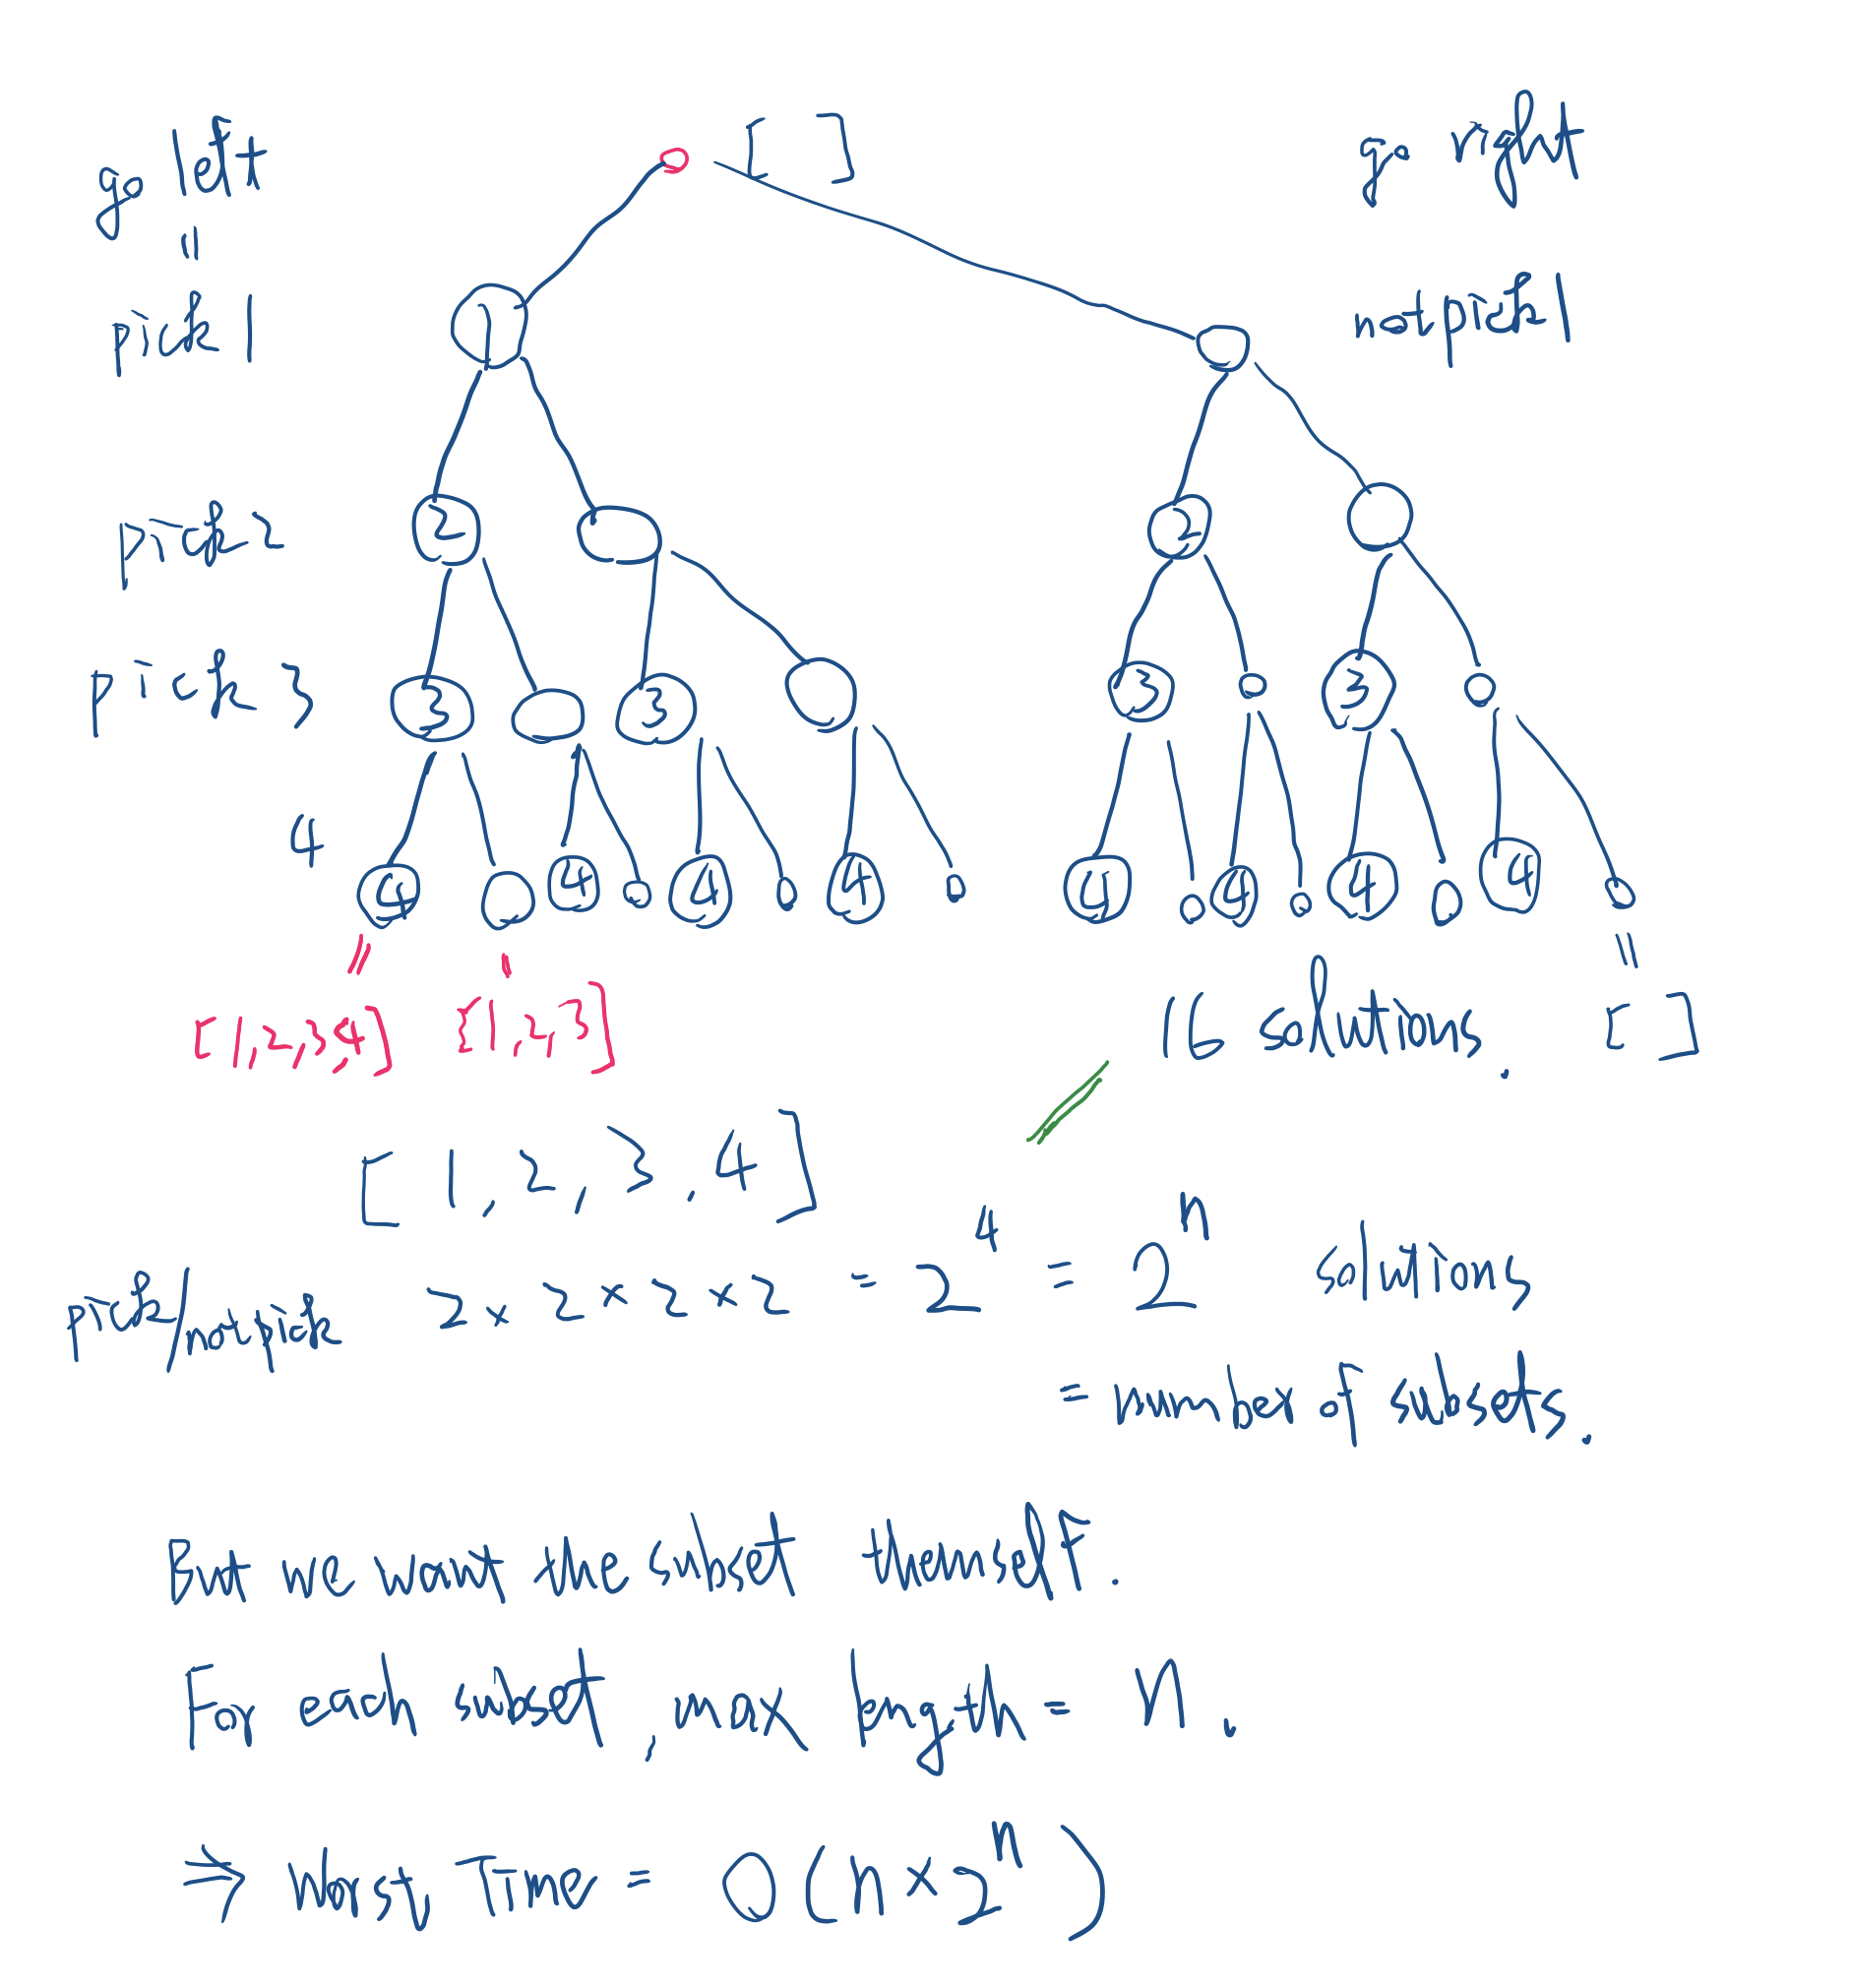 go left [ ] go right
=
pick 1 1 not pick 1
pick 2 2 2
pick 3 3 3 3 3
4
4 4 4 4 4 4 4 4
= =
[1,2,3,4] [1,2,3] 16 solutions. [ ]
[1, 2, 3, 4]
pick/not pick 2 x 2 x 2 x 2 = 2^4 = 2^n solutions
= number of subsets.
But we want the subset themself.
For each subset, max length = n.
⇒ Worst Time = O(n × 2^n)